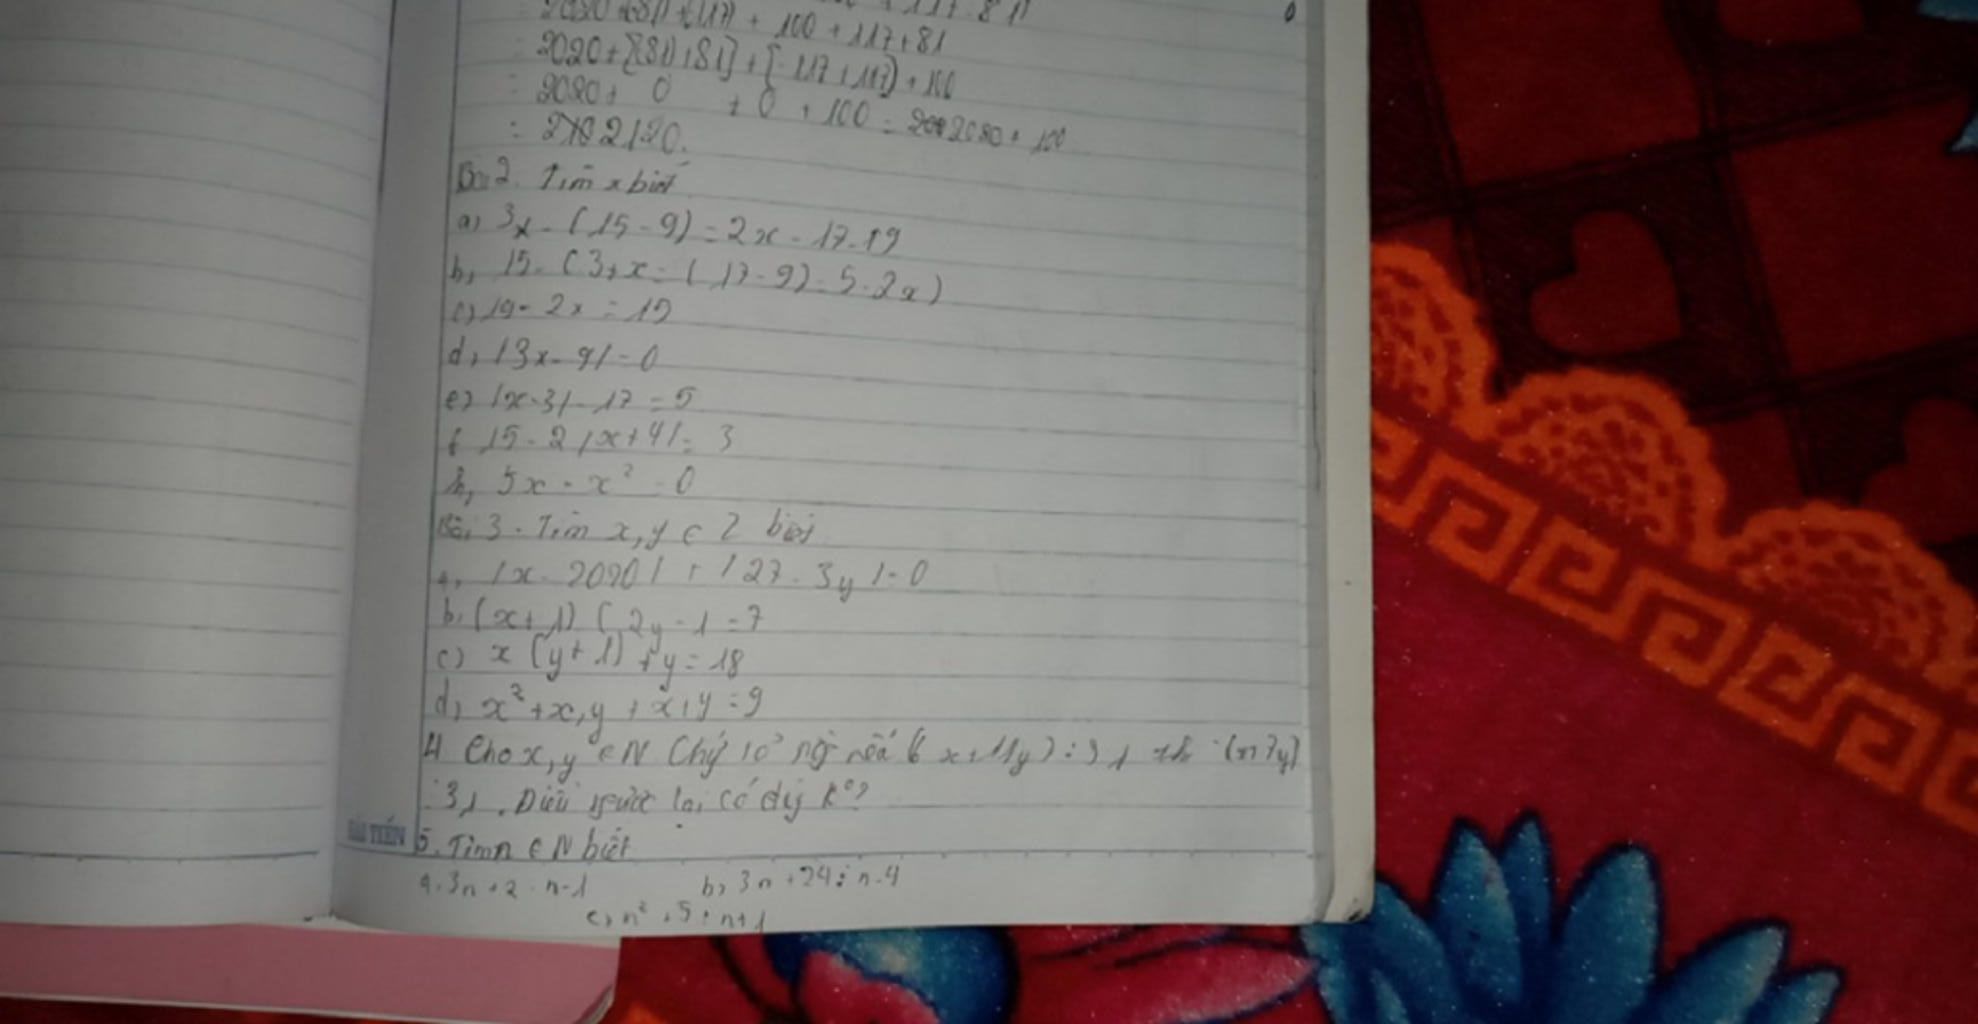 + 100 + 117 + 81
: 2020 + [(81) + 81] + [-117 + 117) + 100
: 2020 + 0 + 0 + 100 = 2020 + 100
: 2120.
Bài 2. Tìm x biết
a) 3x - (15 - 9) = 2x - 17 - 19
b, 15 - (3 + x - (17 - 9) - 5 - 2x)
c) 19 - 2x = 15
d, |3x - 9| = 0
e) |x - 3| - 17 = 5
f 15 - 2 |x + 4| = 3
h, 5x - x² = 0
Bài 3. Tìm x, y ∈ Z biết
a, |x - 2020| + |27 - 3y| = 0
b. (x + 1) (2y - 1 = 7
c) x (y + 1) + y = 18
d, x² + x,y + x + y = 9
4 Cho x, y ∈ N Chứ tỏ rằ nếu (6x + 11y) ⋮ 31 thì (x + 7y)
⋮ 31. Điều ngược lại có đg k⁰?
HẢI TIẾN
5. Tìm n ∈ N biết
a. 3n + 2 ⋮ n - 1 b) 3n + 24 ⋮ n - 4
c, n² + 5 ⋮ n + 1